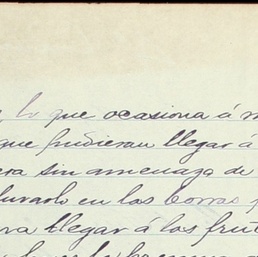 lo que ocasiona á m
que pudieran llegar á
era sin amenaza de
llevarlo en los borras
ra llegar á los frut